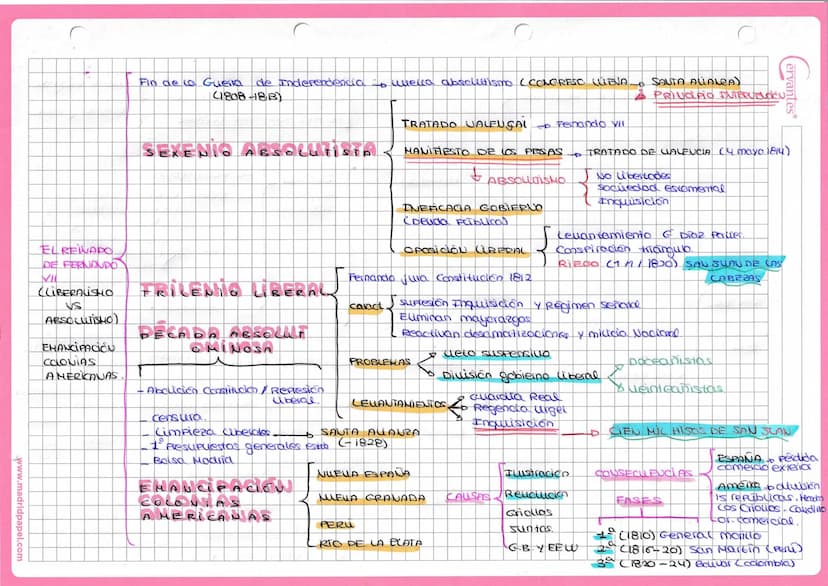 Fin de la Guerra de Independencia → vuelca absolutismo (CONGRESO VIENA → SANTA ALIANZA)
(1808-1813)
PRINCIPIO INTERVENCIÓN
Cervantes
SEXENIO ABSOLUTISTA
TRATADO VALENÇAI → Fernando VII
MANIFIESTO DE LOS PERSAS → TRATADO DE VALENCIA (4 mayo 1814)
ABSOLUTISMO
No libertades
Sociedad estamental
Inquisición
INEFICACIA GOBIERNO
(Deuda Pública)
OPOSICIÓN LIBERAL
Levantamiento Gº Díaz Porlier
Conspiración triángulo
RIEGO (1/1/1820) SAN JUAN DE LAS
CABEZAS
EL REINADO
DE FERNANDO
VII
(LIBERALISMO
VS
ABSOLUTISMO)
EMANCIPACIÓN
COLONIAS
AMERICANAS.
TRILENIO LIBERAL
Fernando jura Constitución 1812
Supresión Inquisición y Régimen Señorial
Eliminan mayorazgos
Reactivan desamortizaciones y milicia Nacional
PROBLEMAS
Veto suspensivo
División gobierno liberal
Doceañistas
Veinteañistas
LEVANTAMIENTOS
Guardia Real
Regencia Urgel
Inquisición
CIEN MIL HIJOS DE SAN JUAN
DÉCADA ABSOLUT
OMINOSA
- Abolición Constitución / Represión
liberal.
- Censura.
- Limpieza liberales → SANTA ALIANZA
(-1828)
- 1º Presupuestos generales
- Bolsa Madrid
EMANCIPACIÓN
COLONIAS
AMERICANAS
NUEVA ESPAÑA
NUEVA GRANADA
PERU
RIO DE LA PLATA
CAUSAS
Ilustración
Revolución
Criollos
Juntas.
G.B. Y EEUU
CONSECUENCIAS
ESPAÑA → pérdida
comercio exterior
AMÉRICA → división
15 repúblicas.
Los Criollos - Caudillo
comercial.
FASES
1ª (1810) General Morillo
2ª (1816-20) San Martín (Perú)
3ª (1820-24) Bolívar (Colombia)
www.madridpapel.com